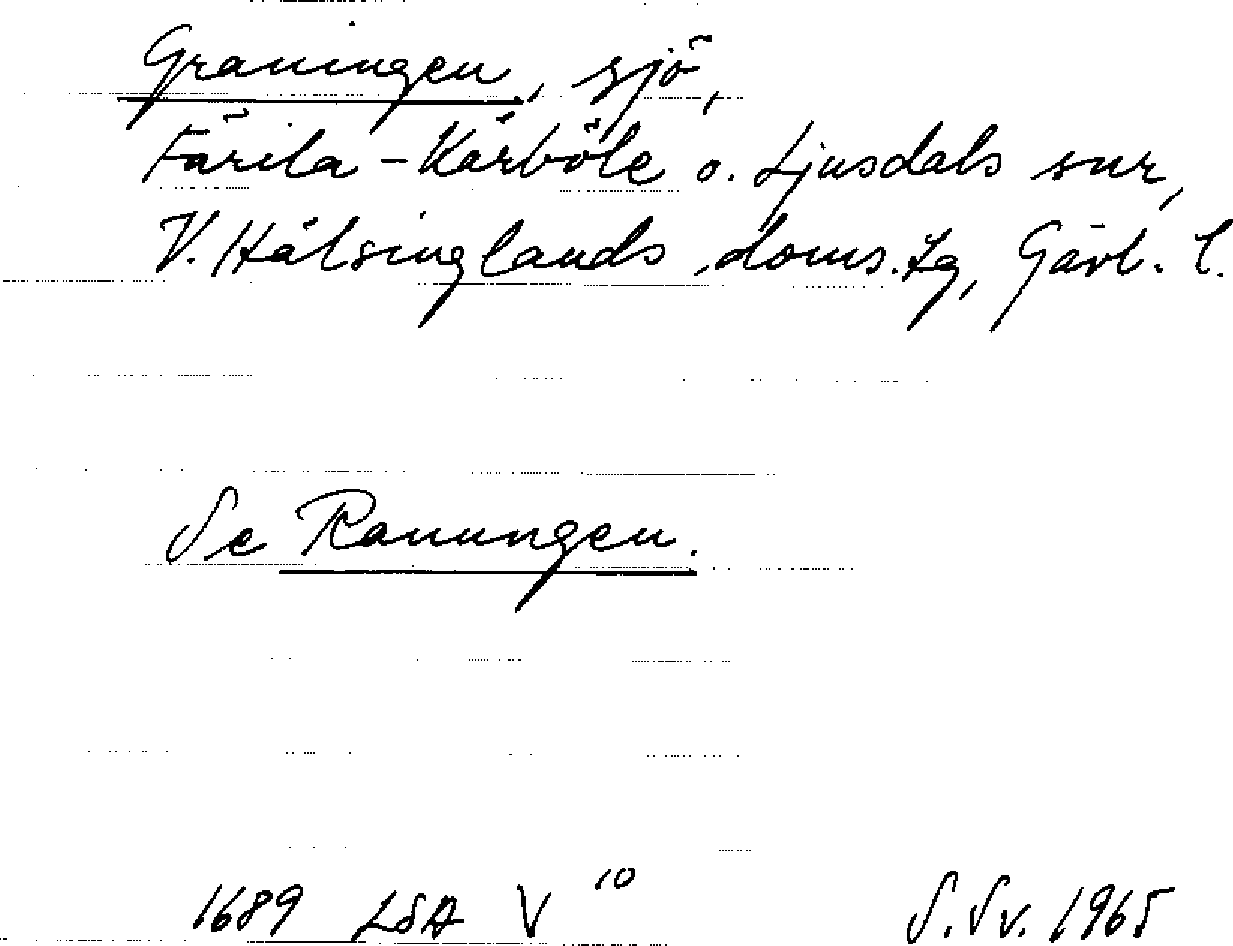 Graningen, sjö,
Färila-Kårböle o. Ljusdals snr,
V. Hälsinglands doms.tg, Gävl. l.
Se Ranungen.
1689 LSA V 10
S. Sv. 1965